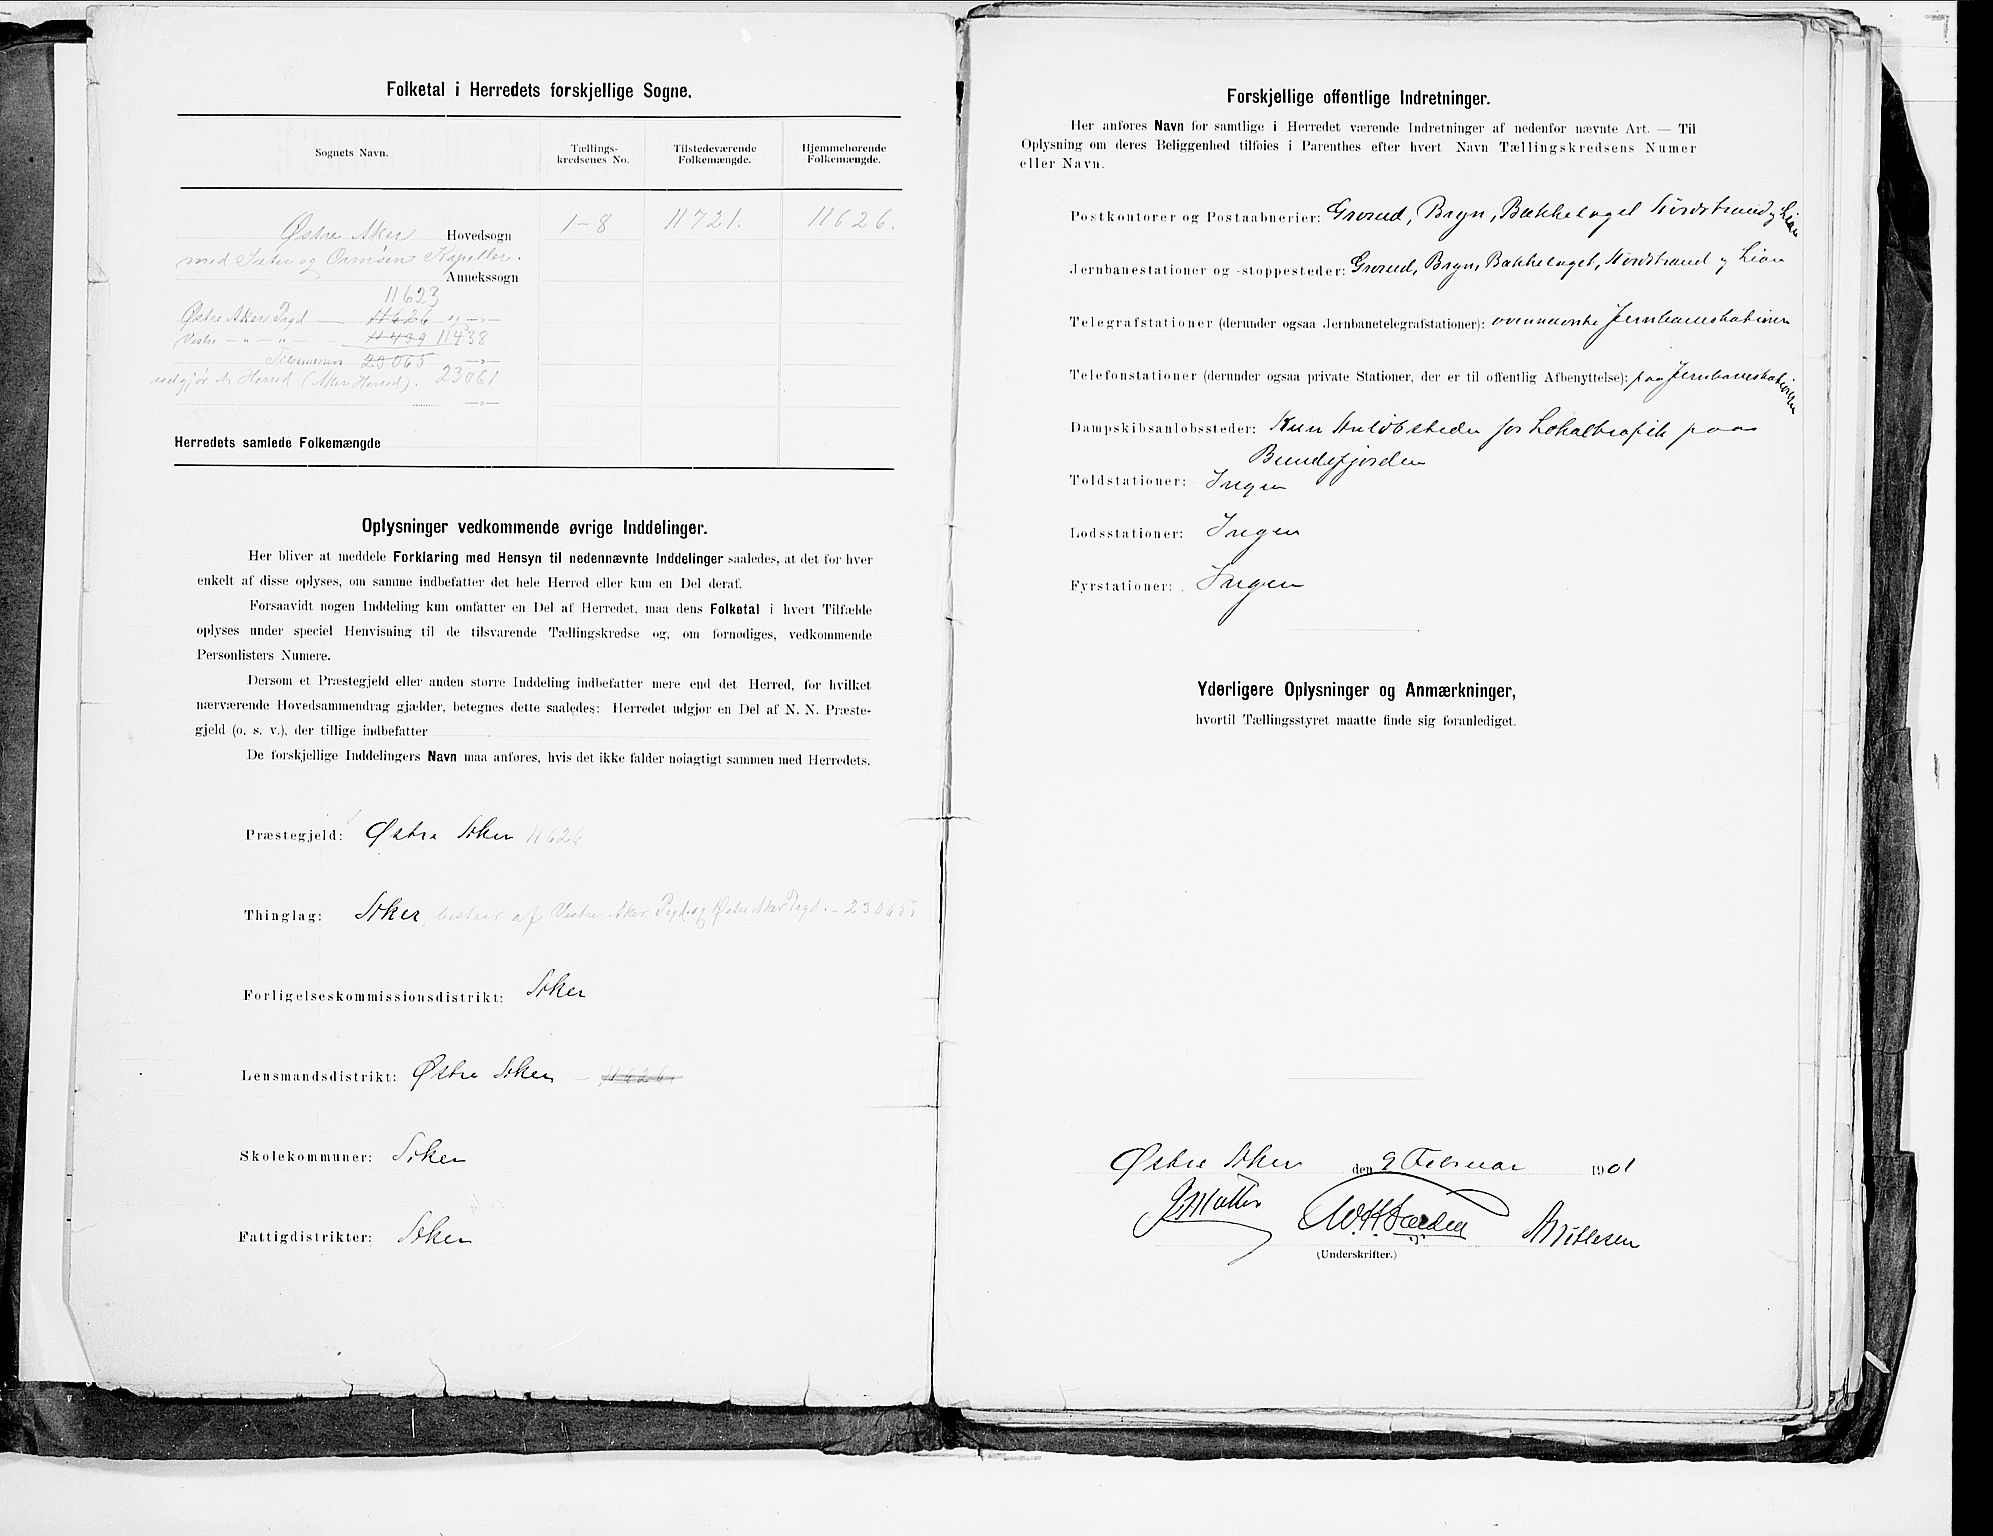 Folketal i Herredets forskjellige Sogne.
Sognets Navn.
Tællings-
kredsenes No.
Tilstedeværende
Folkemængde.
Hjemmehørende
Folkemængde.
Østre Aker Hovedsogn 1-8 11721. 11626.
med Sæter og Ormøen Kapeller.
Annekssogn
11623
Østre Aker Prgd — 11626 og -"-
Vestre -"- -"- 11439 11438
Tilsammen 23065 -"-
udgjør A. Herred (Aker Herred). 23061
-"-
Herredets samlede Folkemængde
Oplysninger vedkommende øvrige Inddelinger.
Her bliver at meddele Forklaring med Hensyn til nedennævnte Inddelinger saaledes, at det for hver
enkelt af disse oplyses, om samme indbefatter det hele Herred eller kun en Del deraf.
Forsaavidt nogen Inddeling kun omfatter en Del af Herredet, maa dens Folketal i hvert Tilfælde
oplyses under speciel Henvisning til de tilsvarende Tællingskredse og, om fornødiges, vedkommende
Personlisters Numere.
Dersom et Præstegjeld eller anden større Inddeling indbefatter mere end det Herred, for hvilket
nærværende Hovedsammendrag gjælder, betegnes dette saaledes: Herredet udgjør en Del af N. N. Præste-
gjeld (o. s. v.), der tillige indbefatter
De forskjellige Inddelingers Navn maa anføres, hvis det ikke falder nøiagtigt sammen med Herredets.
Præstegjeld: Østre Aker 11626
Thinglag: Aker, bestaar af Vestre Aker Prgd. og Østre Aker Prgd. - 23065
Forligelseskommissionsdistrikt: Aker
Lensmandsdistrikt: Østre Aker - 11626.
Skolekommuner: Aker
Fattigdistrikter: Aker
Forskjellige offentlige Indretninger.
Her anføres Navn for samtlige i Herredet værende Indretninger af nedenfor nævnte Art. — Til
Oplysning om deres Beliggenhed tilføies i Parenthes efter hvert Navn Tællingskredsens Numer
eller Navn.
Postkontorer og Postaabnerier: Grorud, Bryn, Bækkelaget Nordstrand og Lian
Jernbanestationer og -stoppesteder: Grorud, Bryn, Bækkelaget, Nordstrand og Lian
Telegrafstationer (derunder ogsaa Jernbanetelegrafstationer): ovennævnte Jernbanestationer
Telefonstationer (derunder ogsaa private Stationer, der er til offentlig Afbenyttelse): paa Jernbanestationerne
Dampskibsanløbssteder: Kun Anløbsteder for Lokaltrafik paa
Bundefjorden
Toldstationer: Ingen
Lodsstationer: Ingen
Fyrstationer: Ingen
Yderligere Oplysninger og Anmærkninger,
hvortil Tællingsstyret maatte finde sig foranlediget.
Østre Aker den 9 Februar 1901
(Underskrifter.)